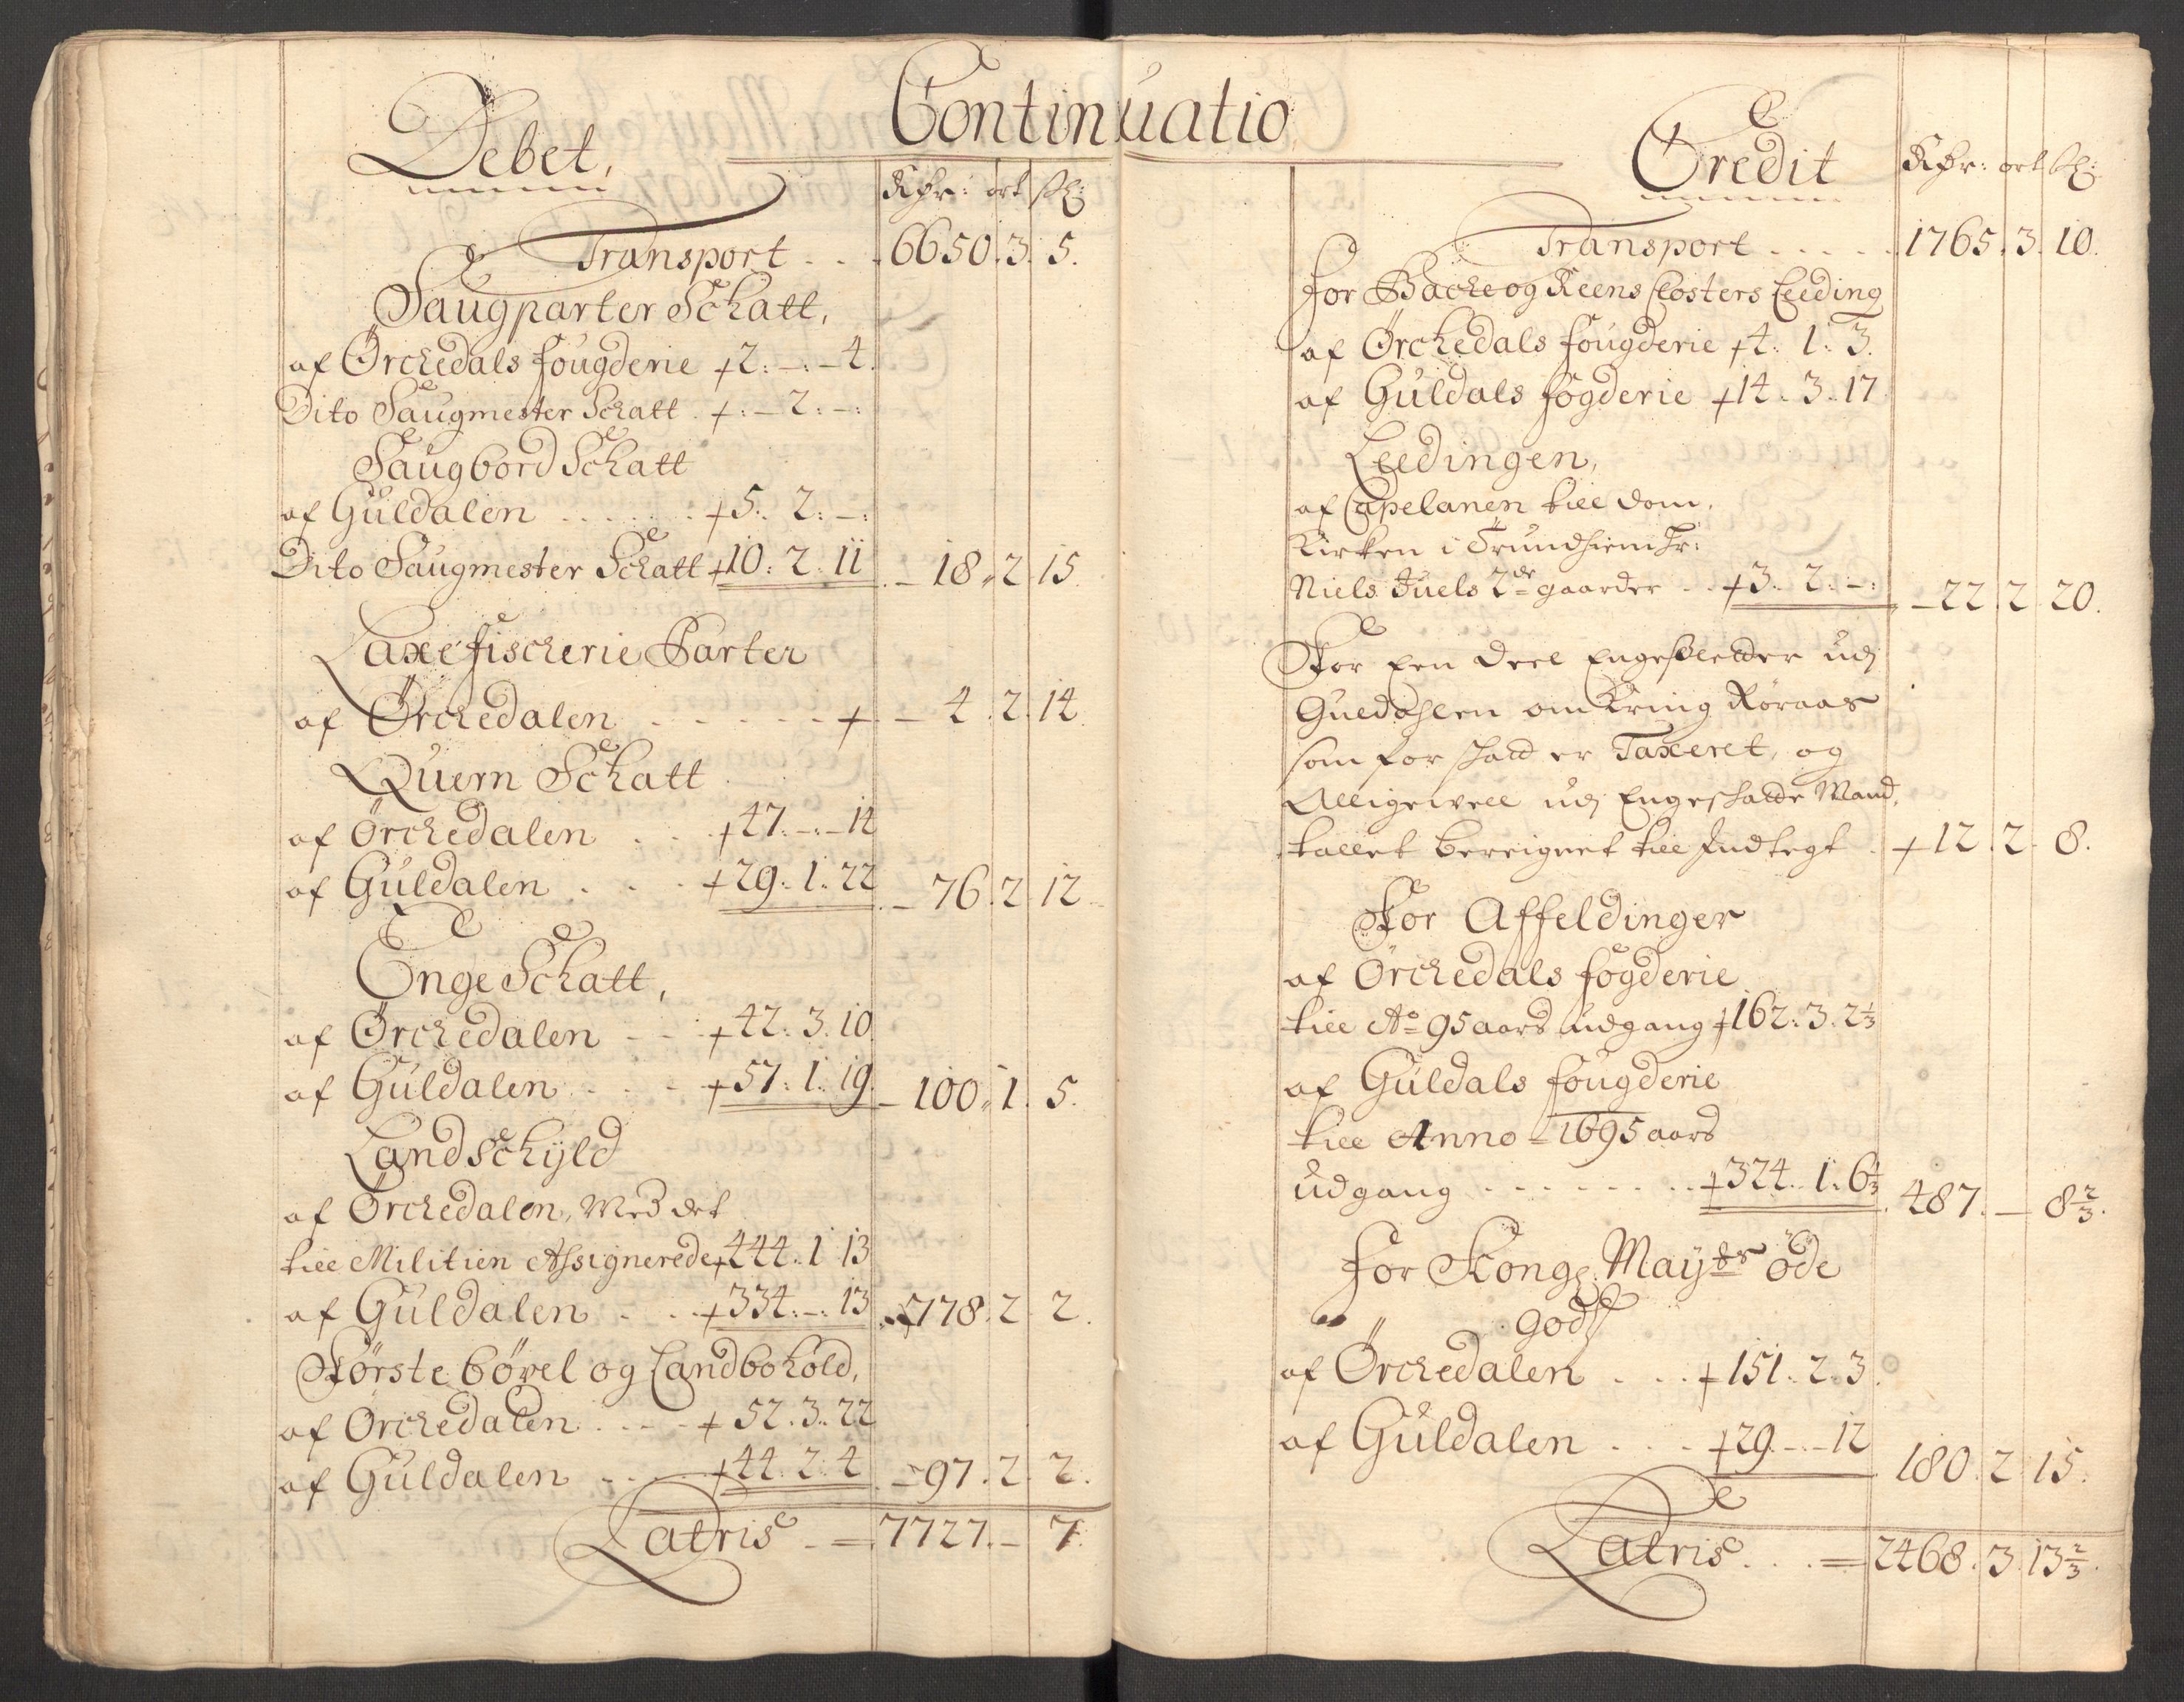 Continuatio
Debet,
Rdr: ort sk:
Transport . . 6650. 3. 5.
Saugparter Schatt,
af Örchedals fougderie +2: –: –4.
Dito Saugmester Schatt . +: – 2: –:
Saugbord Schatt
af Guldalen . . . . . . +5. 2: –:
Dito Saugmester Schatt +10: 2: 11 – 18. 2. 15.
Laxe fischerie Parter
af Örchedalen . . . . . . + – 4. 2. 14
Quern Schatt
af Örchedalen . . . +47: –: –14
af Guldalen . . . +29: 1: 22 – 76. 2. 12
Enge Schatt,
af Örchedalen . . . +42: 3. 10.
af Guldalen . . . +57: 1. 19. – 100. 1. 5.
Landschyld
af Örchedalen, med det
till Militien Assignerede +444: 1 13
af Guldalen . . . +334: –: 13 778. 2. 2.
Förste bövel og Landbohold,
af Örchedalen . . . . + 52. 3. 22
af Guldalen . . . +44. 2. 4 – 97. 2. 2.
Latris – = 7727. – 7.
Credit
Rdr: ort sk:
Transport . . . . . 1765. 3. 10.
for Bache og Reens Closters Leeding
af Örchedals fougderie +4: 1: 3.
af Guldals fogderie +14. 3. 17
Leedingen,
af Capelanen till Dom,
Kirken i Trundhiem Hr:
Niels Juels 2de gaarder . . +3. 2. –: – 22. 2. 20.
For een deel Engesletter udj
Guldahlen omkring Röraas
som for skatt er Taxeret, og
Alligevell udj Engeskatte Mand,
tallet bereignet till Indtegt . +12. 2. 8.
For Affeldinger
af Örchedals fogderie
till Ao 95 aars udgang +162: 3. 2 1/3
af Guldals fougderie
till Anno 1695 aars
udgang . . . . . . +324. 1. 6 1/3 487. – 8 2/3.
for Kongl. Mayts öde
godtz
af Örchedalen . . . +151. 2. 3.
af Guldalen . . . +29. –. –12 180. 2. 15.
Latris . . . = 2468. 3. 13 2/3.